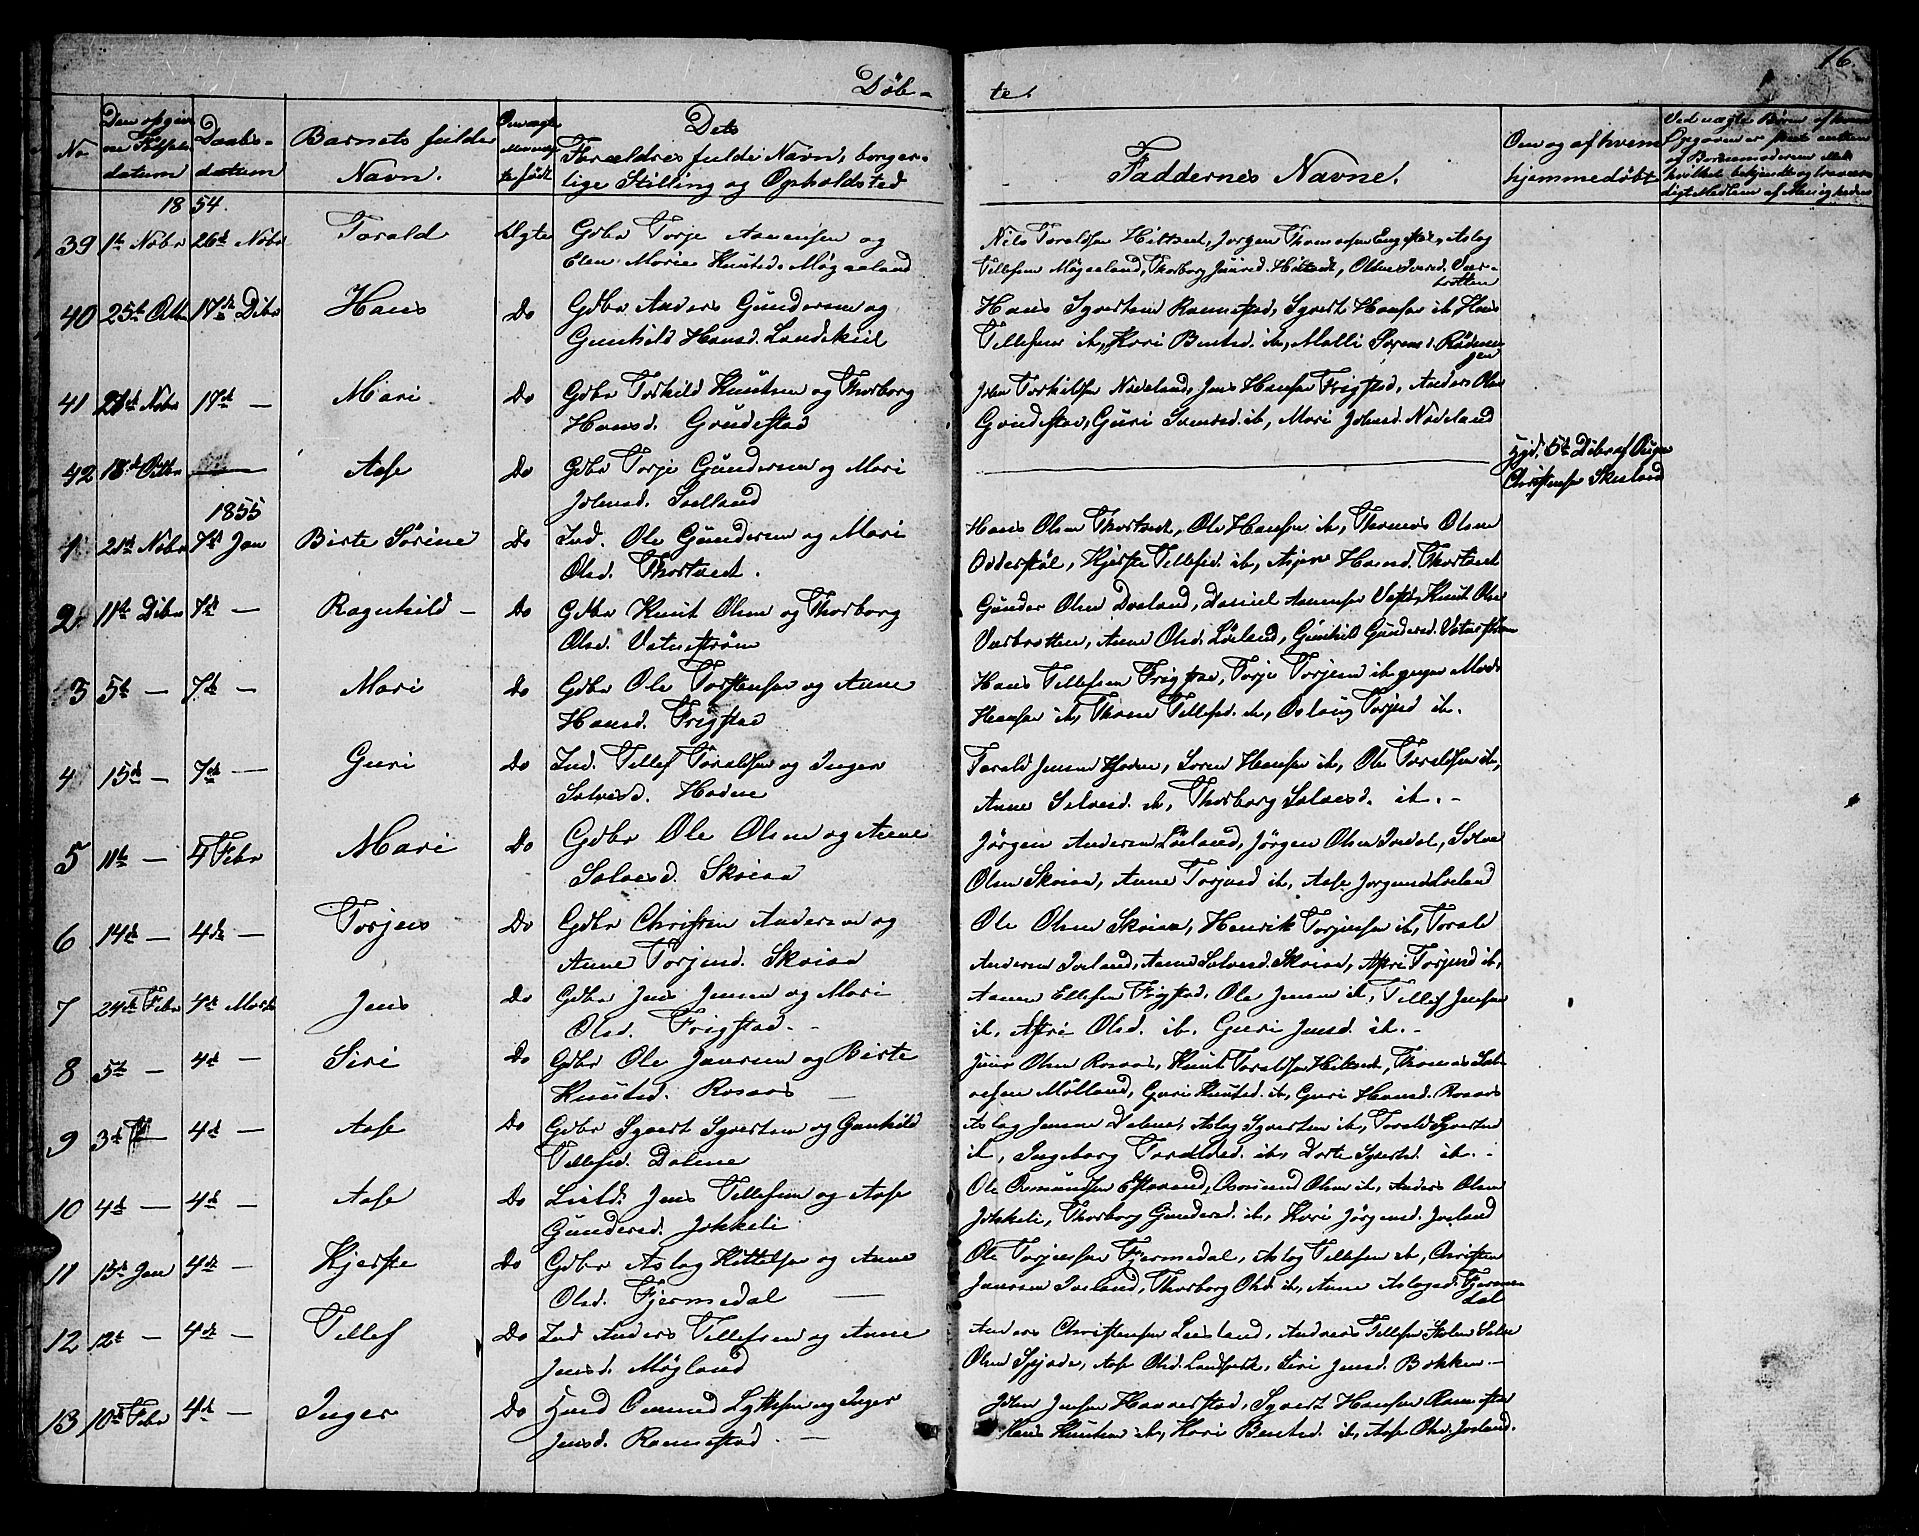 16.
Døb-
te.
No
Den opgiv
ne Fødsels
datum
Daabs-
datum
Barnets fulde
Navn.
Om ægte
født
Dets
Forældres fulde Navn, borger-
lige Stilling og Opholdsted
Faddernes Navne.
Om og af hvem
hjemmedøbt
Ved uægte Børn af hvem
Opgaven er skeet enten
af Barnemoderen eller
hvilket bekjendt og troværdigt
digt Medlem af Menigheden
1854.
39 1te Nobr 26de Nobr Torald Ægte Gdbr Torje Aanensen og
Elen Marie Knutsd. Møgaaland
Nils Toraldsen Hiltvedt, Jørgen Thomassen Engestøl, Aslag
Tellefsen Møgaaland, Thorborg Jansd. Hiltvedt, Oline Iversd. Var-
brotten
40 25de Octbr 17de Dcbr Hans Do Gdbr Anders Gundersen og
Gunhild Hansd. Landskiil
Hans Syvertsen Ramnestad, Syvert Hansen ib, Hans
Tellefsen ib, Kari Bentsd. ib, Malli Sørensd.
41 21de Nobr 17de — Mari Do Gdbr Torkild Knutsen og Thorborg
Hansd. Grudestad
John Torkilsen Nødeland, Jens Hansen Frigstad, Anders Olsen
Grudestad, Guri Svensd. ib, Mari Johnsd. Nødeland
42 18de Octbr — Aase Do Gdbr Torje Gundersen og Mari
Johnsd.
Hjd. 5te Dcbr af Aagen
Christensen Skeiland
1855
1 21de Nobr 7de Jan Birte Sørine Do Ind. Ole Gundersen og Mari
Olsd. Thortvedt.
Hans Olsen Thortvedt, Ole Hansen ib, Thomas Olsen
Odderstøl, Kjerste Tellefsd. ib, Hansd. Thortvedt
2 11te Dcbr 7de — Ragnhild — Do Gdbr Knut Olsen og Thorborg
Olsd. Vatnestrøm
Gunder Olsen Dveland, Daniel Aanensen Knut Olsen
Varbrotten, Anne Olsd. Løland, Gunhild Gundersd. Vatnestrøm
3 5te — 7de — Mari Do Gdbr Ole Torstensen og Anne
Hansd. Frigstad
Hans Tellefsen Frigstad, Torje Torjesen ib, Mads
Hansen ib, Thone Tellefsd. ib, Aslaug Torjesd ib.
4 15de — 7de — Guri Do Ind. Tellef Toraldsen og Inger
Salvesd. Hodne
Torald Jensen Hodne, Søren Hansen ib, Ole Toraldsen ib,
Anne Salvesd. ib, Thorborg Salvesd. ib. —
5 11te — 4 Febr Mari Do Gdbr Ole Olsen og Anne
Salvesd. Skeiaa
Jørgen Andersen Løland, Jørgen Olsen Ivedal, Salve
Olsen Skeiaa, Anne Torjesd ib, Aase Jørgensd. Løland
6 14de — 4de — Torjus Do Gdbr Christen Andersen og
Anne Torjesd. Skeiaa
Ole Olsen Skeiaa, Henrik Torjussen ib, Torald
Andersen Iveland, Anne Salvesd. Skeiaa, Astri Torjesd ib,
7 24de Febr 4de Marts Jens Do Gdbr Jens Jensen og Mari
Olsd. Frigstad. —
Aanen Ellefsen Frigstad, Ole Jensen ib, Tellef Jensen
ib, Astri Olsd. ib. Guri Jensd. ib. —
8 5te — 4de — Siri Do Gdbr Ole Jansen og Birte
Knutsd. Rosaas —
Olsen Rosaas, Knut Toraldsen Hiltvedt, Thomas Sal-
vesen Mølland, Guri Knutsd. ib, Guri Hansd. Rosaas
9 3de — 4de — Aase Do Gdbr Syvert Syvertsen og Gunhild
Tellefsd. Dalene
Aslag Jensen Dalene, Aslag Syvertsen ib, Torald Syvertsen
ib, Ingeborg Toraldsd. ib, Dorte Syvertsd. ib. —
10 4de — 4de — Aase Do Leild. Jens Tellefsen og Aase
Gundersd. Jokkeli
Ole Osmundsen Osmund Olsen ib, Anders Olsen
Jokkeli, Thorborg Gundersd. ib, Kari Jørgensd. Iveland
11 15de Jan 4de — Kjerste Do Gdbr Aslag Kittelsen og Anne
Olsd. Fjermedal —
Ole Torjussen Fjermedal, Aslag Tellefsen ib, Christen
Jansen Iveland, Thorborg Olsd. ib, Anne Aslagsd. Fjerme-
dal
12 12te — 4de — Tellef Do Ind Anders Tellefsen og Anne
Jensd. Møgland
Anders Christensen Leesland, Andreas Tellefsen Salve
Olsen Aase Olsd. Siri Jensd. Bakken —
13 10de Febr 4de — Inger Do Osmund og Inger
Jensd. Ramnestad. —
John Jensen Haaverstad, Syvert Hansen Ramnestad
Hans Knutsen ib, Kari Bentsd. ib, Aase Olsd. Iveland.